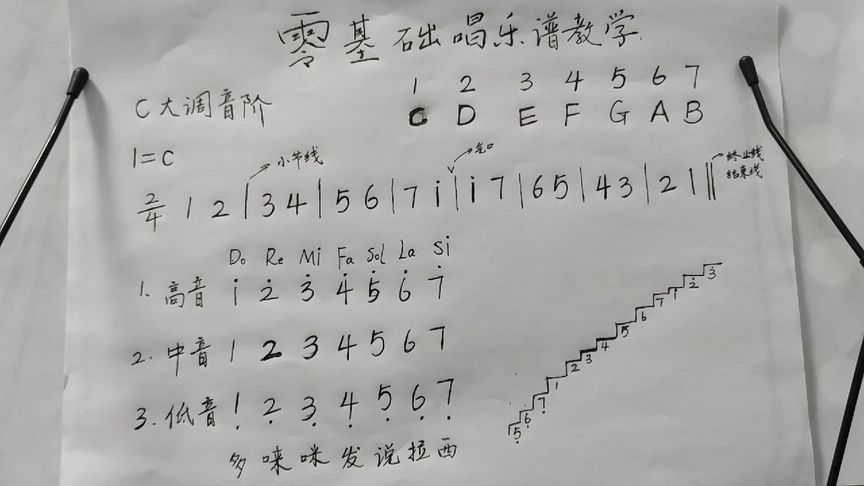 零基础唱乐谱教学
1 2 3 4 5 6 7
C大调音阶 C D E F G A B
1=C
小节线 气口 终止线
结束线
2/4 1 2 | 3 4 | 5 6 | 7 i | i 7 | 6 5 | 4 3 | 2 1 ||
Do Re Mi Fa Sol La Si
1. 高音 i 2̇ 3̇ 4̇ 5̇ 6̇ 7̇
2. 中音 1 2 3 4 5 6 7
3. 低音 1̣ 2̣ 3̣ 4̣ 5̣ 6̣ 7̣
多唻咪发说拉西
5̣ 6̣ 7̣ 1 2 3 4 5 6 7 i 2̇ 3̇